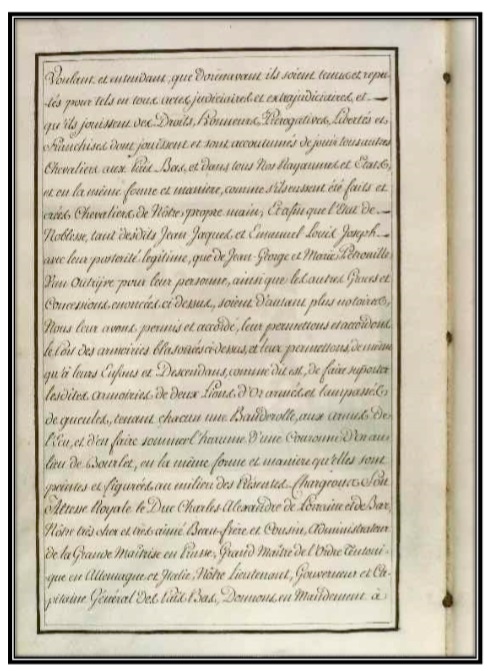 Voulant et entendant, que Dorénavant ils soient tenus et repu-
tés pour tels en tous actes judiciaires et extrajudiciaires, et
qu'ils jouissent des Droits, Honneurs, Prérogatives, Libertés et
Franchises dont jouissent et sont accoutumés de jouir tous autres
Chevaliers aux Païs-Bas, et dans tous Nos Royaumes et Etats,
et en la même forme et manière, comme s'ils eussent été faits et
créés Chevaliers de Nôtre propre main; Et afin que l'Etat de
Noblesse, tant desdits Jean Jaques et Emanuel Louis Joseph
avec leur postérité légitime, que de Jean-George et Marie Petronille
Van Outrÿve pour leur personne, ainsi que les autres Graces et
Concessions énoncées ci-dessus, soient d'autant plus notoires,
Nous leur avons permis et accordé, leur permettons et accordons
le Port des armoiries blasonnées ci-dessus, et leur permettons, de même
qu'à leurs Enfans et Descendans, comme dit est, de faire suporter
lesdites armoiries de deux Lions d'Or armés et lampassés
de gueules, tenant chacun une Banderolle, aux armes de
l'Ecu, et d'en faire sommer l'haume d'une Couronne d'Or au
lieu de Bourlet, en la même forme et manière qu'elles sont
peintes et figurées au milieu des Présentes. Chargeons Son
Altesse Royale le Duc Charles Alexandre de Loraine et de Bar,
Nôtre très cher et très aimé Beau-frère et Cousin, Administrateur
de la Grande Maîtrise en Prusse, Grand Maître de l'Ordre Teutoni-
que en Allemagne et Italie, Nôtre Lieutenant, Gouverneur et Ca-
pitaine Général des Païs-Bas, Donnons en Mandement à